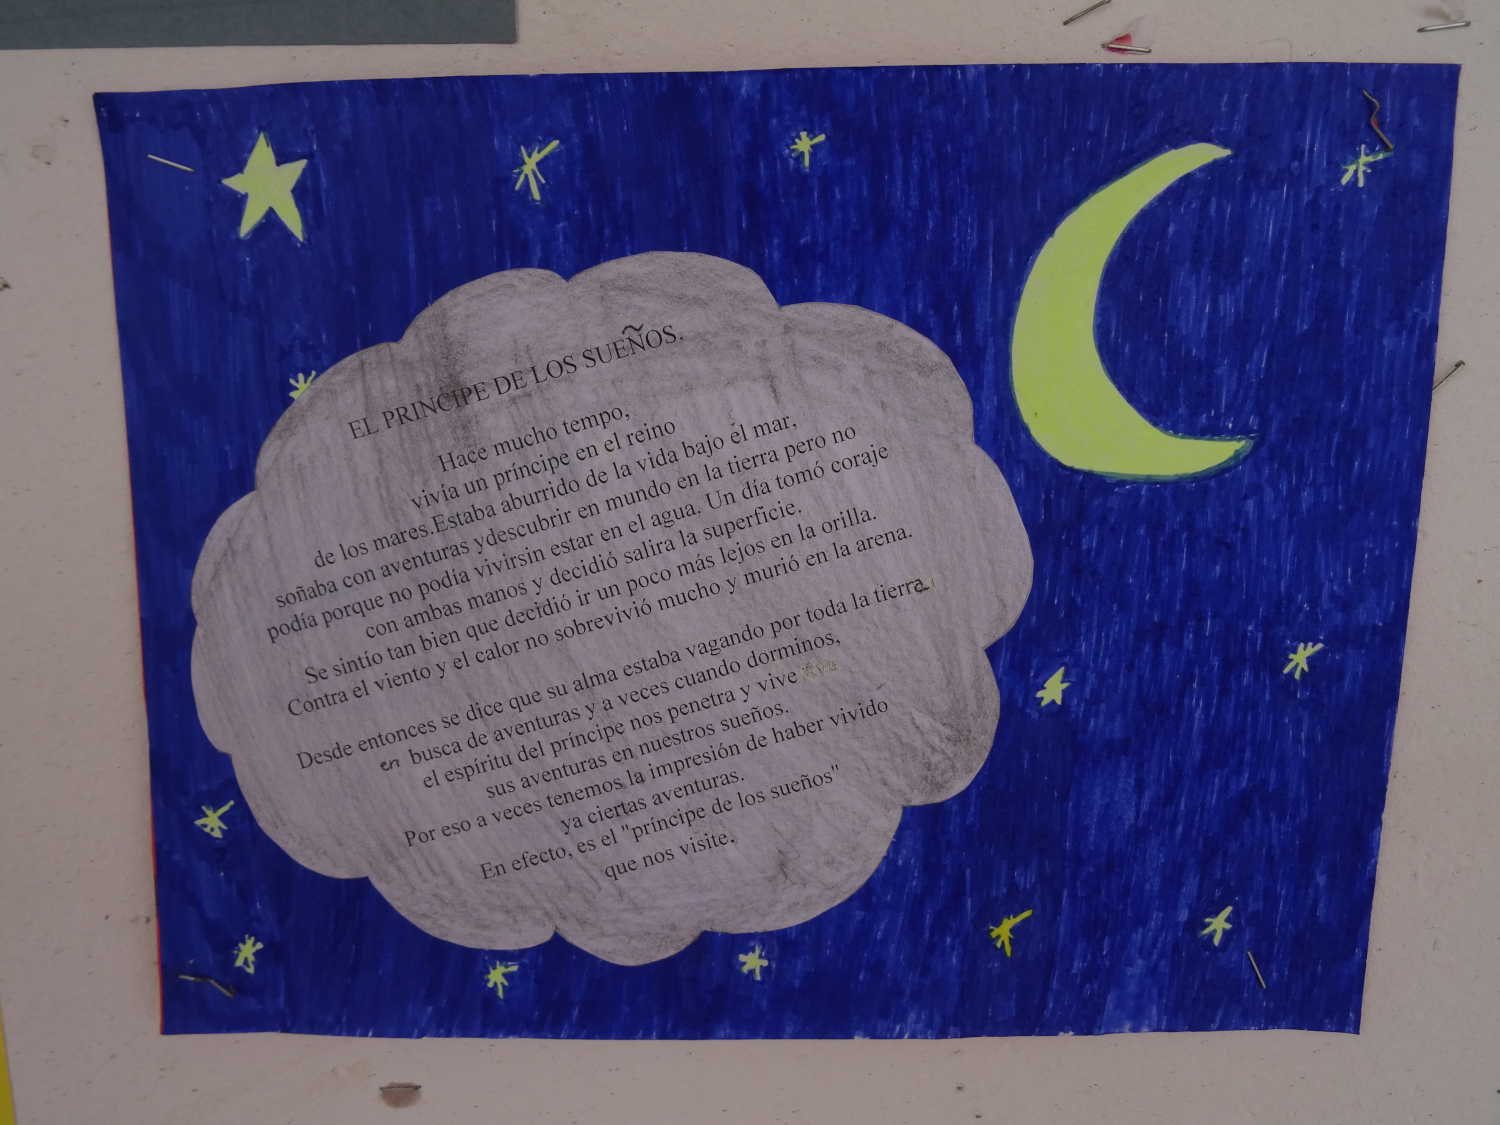 EL PRINCIPE DE LOS SUEÑOS.
Hace mucho tempo,
vivía un príncipe en el reino
de los mares.Estaba aburrido de la vida bajo él mar,
soñaba con aventuras ydescubrir en mundo en la tierra pero no
podía porque no podía vivirsin estar en el agua. Un día tomó coraje
con ambas manos y decidió salira la superficie.
Se sintío tan bien que decidió ir un poco más lejos en la orilla.
Contra el viento y el calor no sobrevivió mucho y murió en la arena.
Desde entonces se dice que su alma estaba vagando por toda la tierra
en busca de aventuras y a veces cuando dorminos,
el espíritu del príncipe nos penetra y vive
sus aventuras en nuestros sueños.
Por eso a veces tenemos la impresión de haber vivido
ya ciertas aventuras.
En efecto, es el "príncipe de los sueños"
que nos visite.